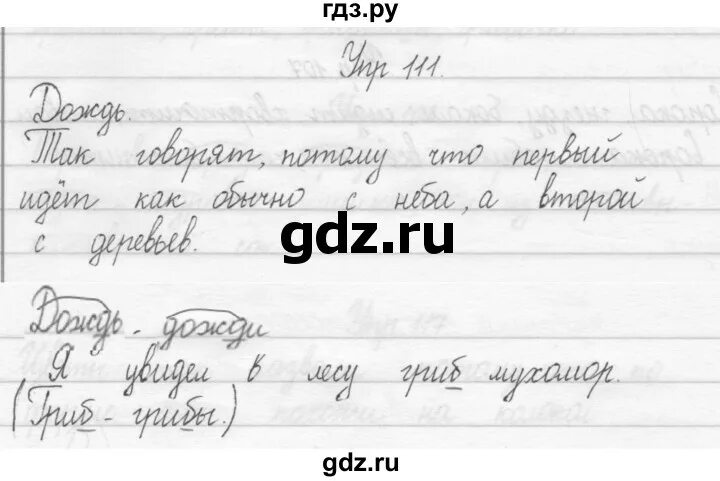 гдз.ру
Упр 111.
Дождь.
Так говорят, потому что первый
идёт как обычно с неба, а второй
с деревьев.
gdz.ru
Дождь - дожди
Я увидел в лесу гриб мухомор.
(Гриб - грибы.)
gdz.ru